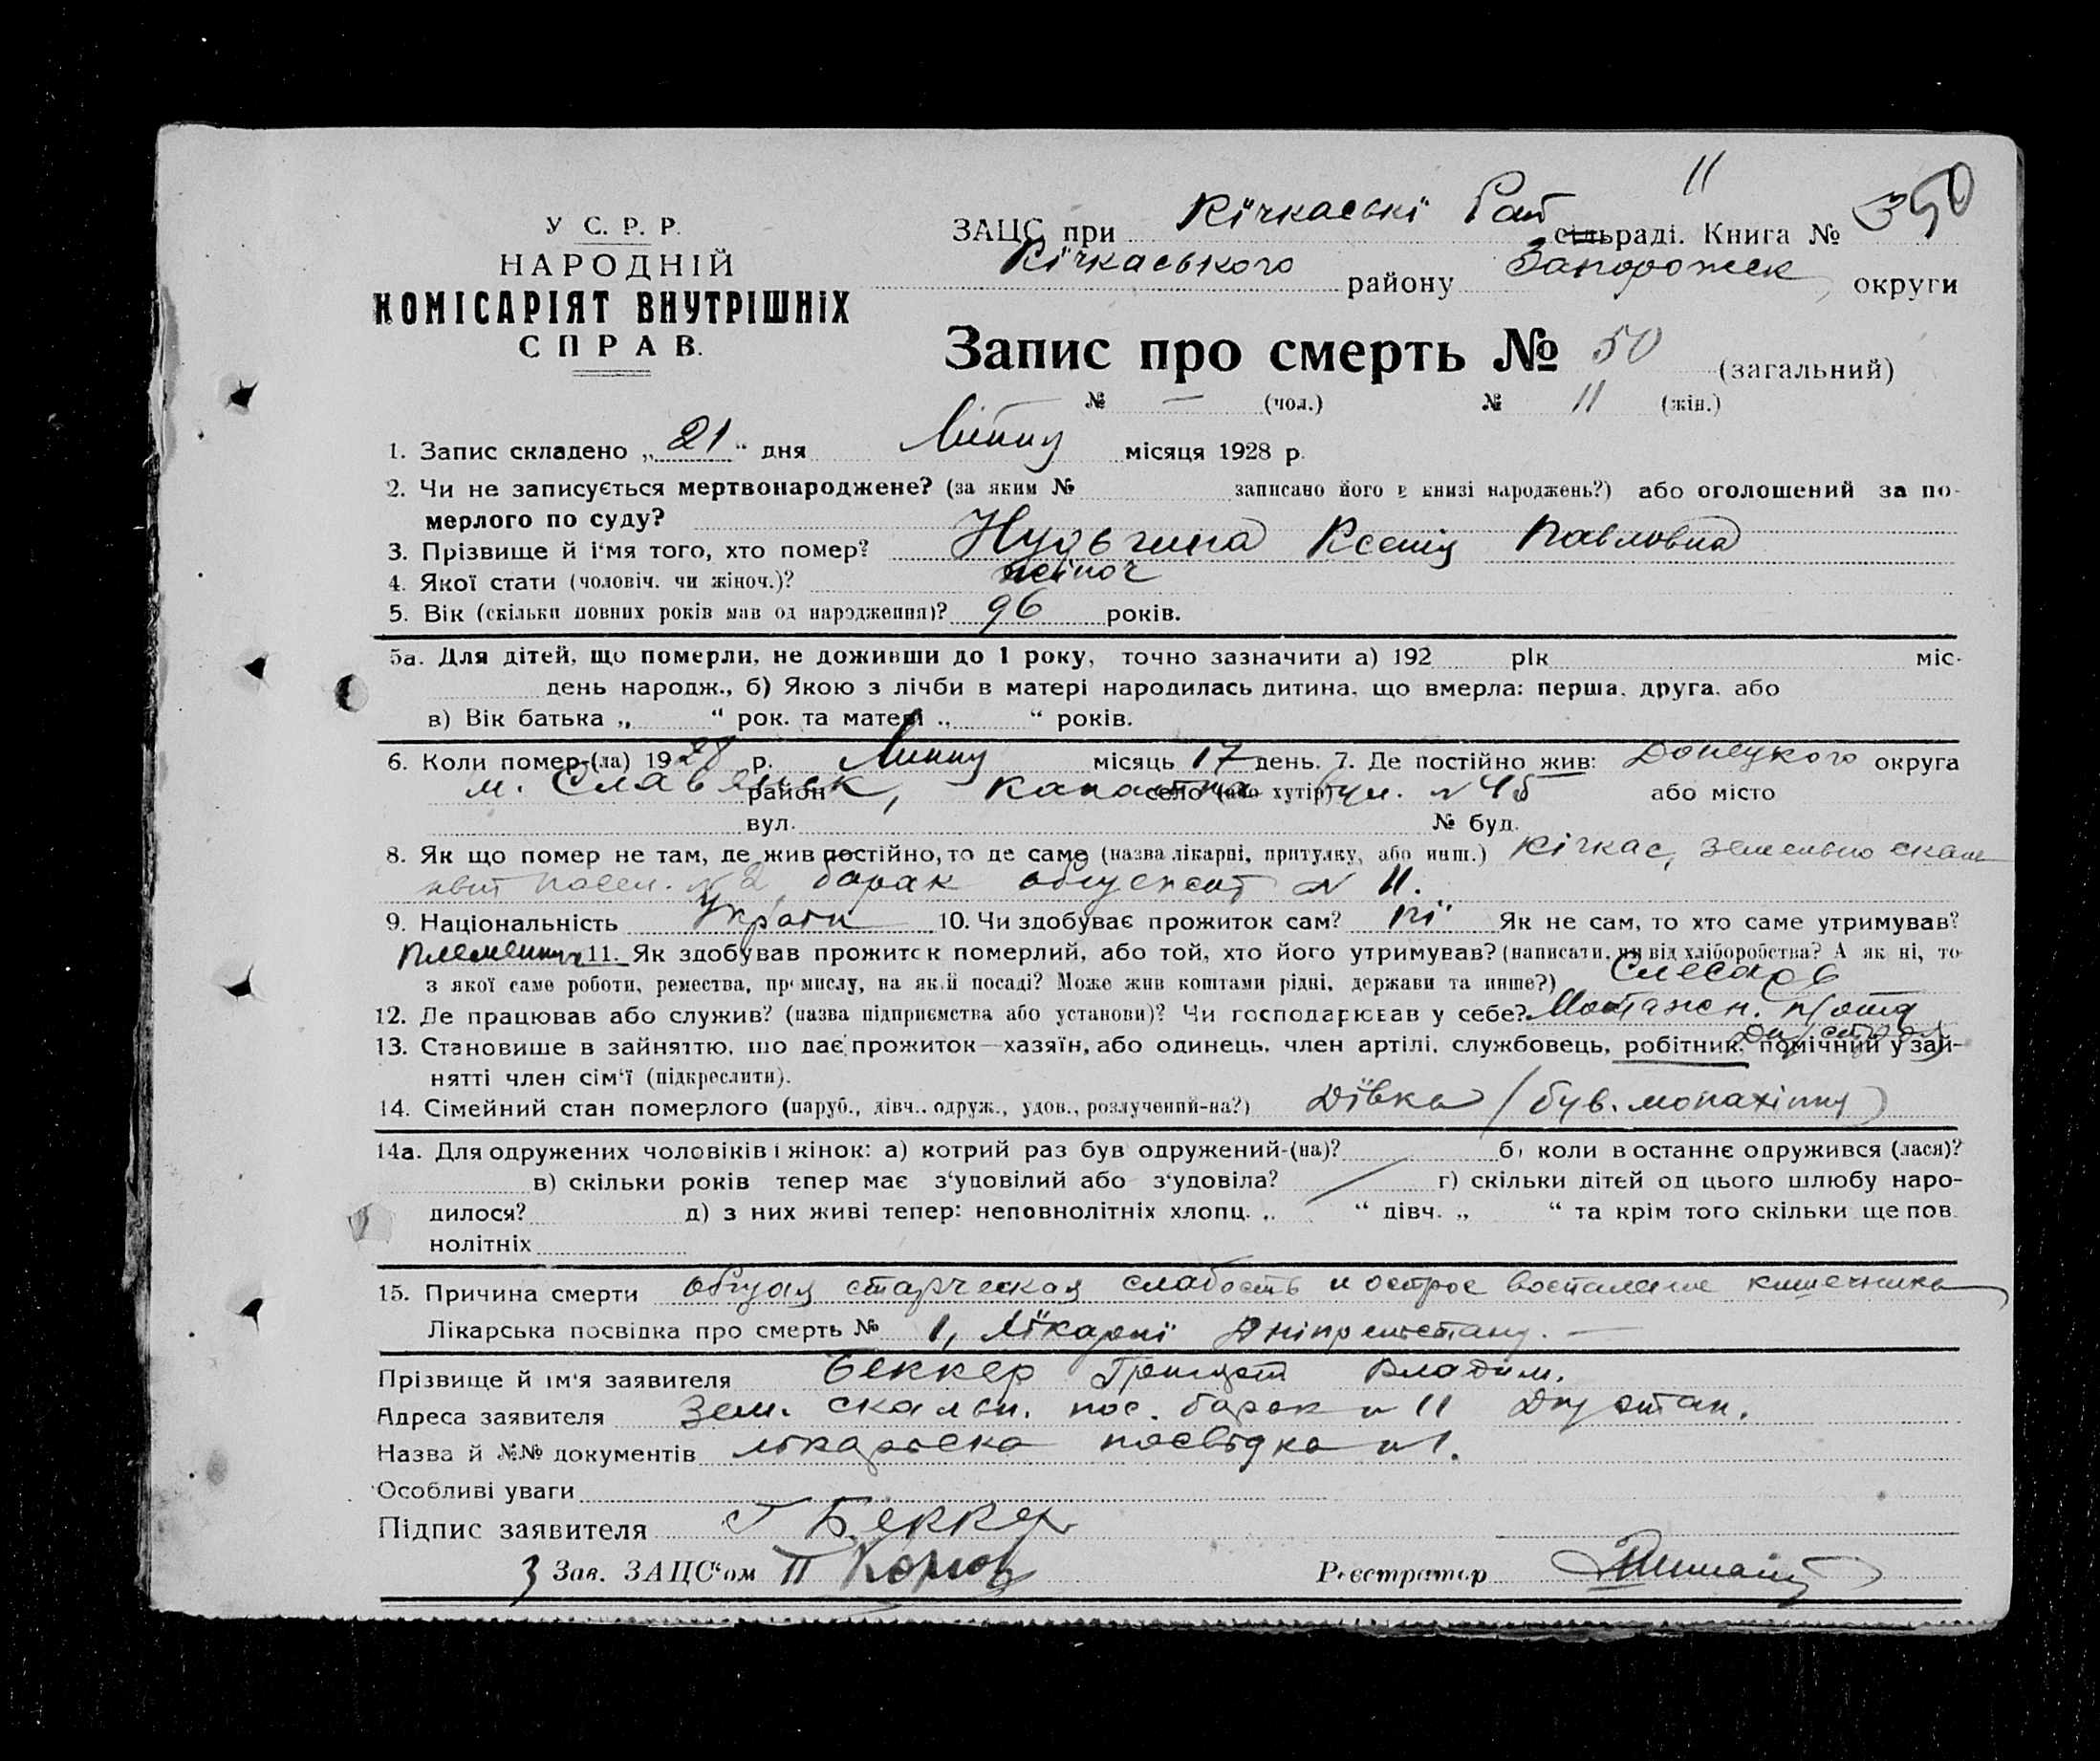 11
У С. Р. Р.
НАРОДНІЙ
КОМІСАРІЯТ ВНУТРІШНІХ
СПРАВ.
ЗАЦС при Кічкаські Рай сільраді. Книга № 350
Кічкаського району Запорожск округи
Запис про смерть № 50 (загальний)
№ — (чол.) № 11 (жін.)
1. Запис складено „21“ дня Липня місяця 1928 р.
2. Чи не записується мертвонароджене? (за яким № записано його в книзі народжень?) або оголошений за по-
мерлого по суду?
3. Прізвище й і'мя того, хто помер? Нудьгина Ксенія Павловна
4. Якої стати (чоловіч. чи жіноч.)? жіноч
5. Вік (скільки повних років мав од народження)? 96 років.
5а. Для дітей, що померли, не доживши до 1 року, точно зазначити а) 192 рік міс-
день народж., б) Якою з лічби в матері народилась дитина, що вмерла: перша, друга, або
в) Вік батька „ “ рок. та матері „ “ років.
6. Коли помер-(ла) 1928 р. Липня місяць 17 день. 7. Де постійно жив: Донецкого округа
м. Славянск, район село (або хутір) ул. № 45 або місто
вул. № буд.
8. Як що помер не там, де жив постійно, то де саме (назва лікарні, притулку, або инш.) Кічкас,
посел. № 2 барак № 11.
9. Національність Україн 10. Чи здобуває прожиток сам? ні Як не сам, то хто саме утримував?
Племенник 11. Як здобував прожиток померлий, або той, хто його утримував? (написати, чи від хліборобства? А як ні, то
з якої саме роботи, ремества, промислу, на якій посаді? Може жив коштами рідні, держави та инше?) Слесарь
12. Де працював або служив? (назва підприємства або установи)? Чи господарював у себе?
13. Становище в зайняттю, що дає прожиток—хазяїн, або одинець, член артілі, службовець, робітник, помічний у зай-
нятті член сім'ї (підкреслити).
14. Сімейний стан померлого (паруб., дівч., одруж., удов., розлучений-на?) Дівка (був. монахіння)
14а. Для одружених чоловіків і жінок: а) котрий раз був одружений-(на)? б) коли в останнє одружився (лася)?
в) скільки років тепер має з'удовілий або з'удовіла? г) скільки дітей од цього шлюбу наро-
дилося? д) з них живі тепер: неповнолітніх хлопц. „ “ дівч. „ “ та крім того скільки ще пов.
нолітніх
15. Причина смерти общая старческая слабость и острое воспаление кишечника
Лікарська посвідка про смерть № 1, Лікарні
Прізвище й ім'я заявителя Беккер Владим.
Адреса заявителя Зем. скальн. пос. барак № 11
Назва й №№ документів лікарська посвідка № 1.
Особливі уваги
Підпис заявителя Г Беккер
З Зав. ЗАЦС'ом П
Реєстратор